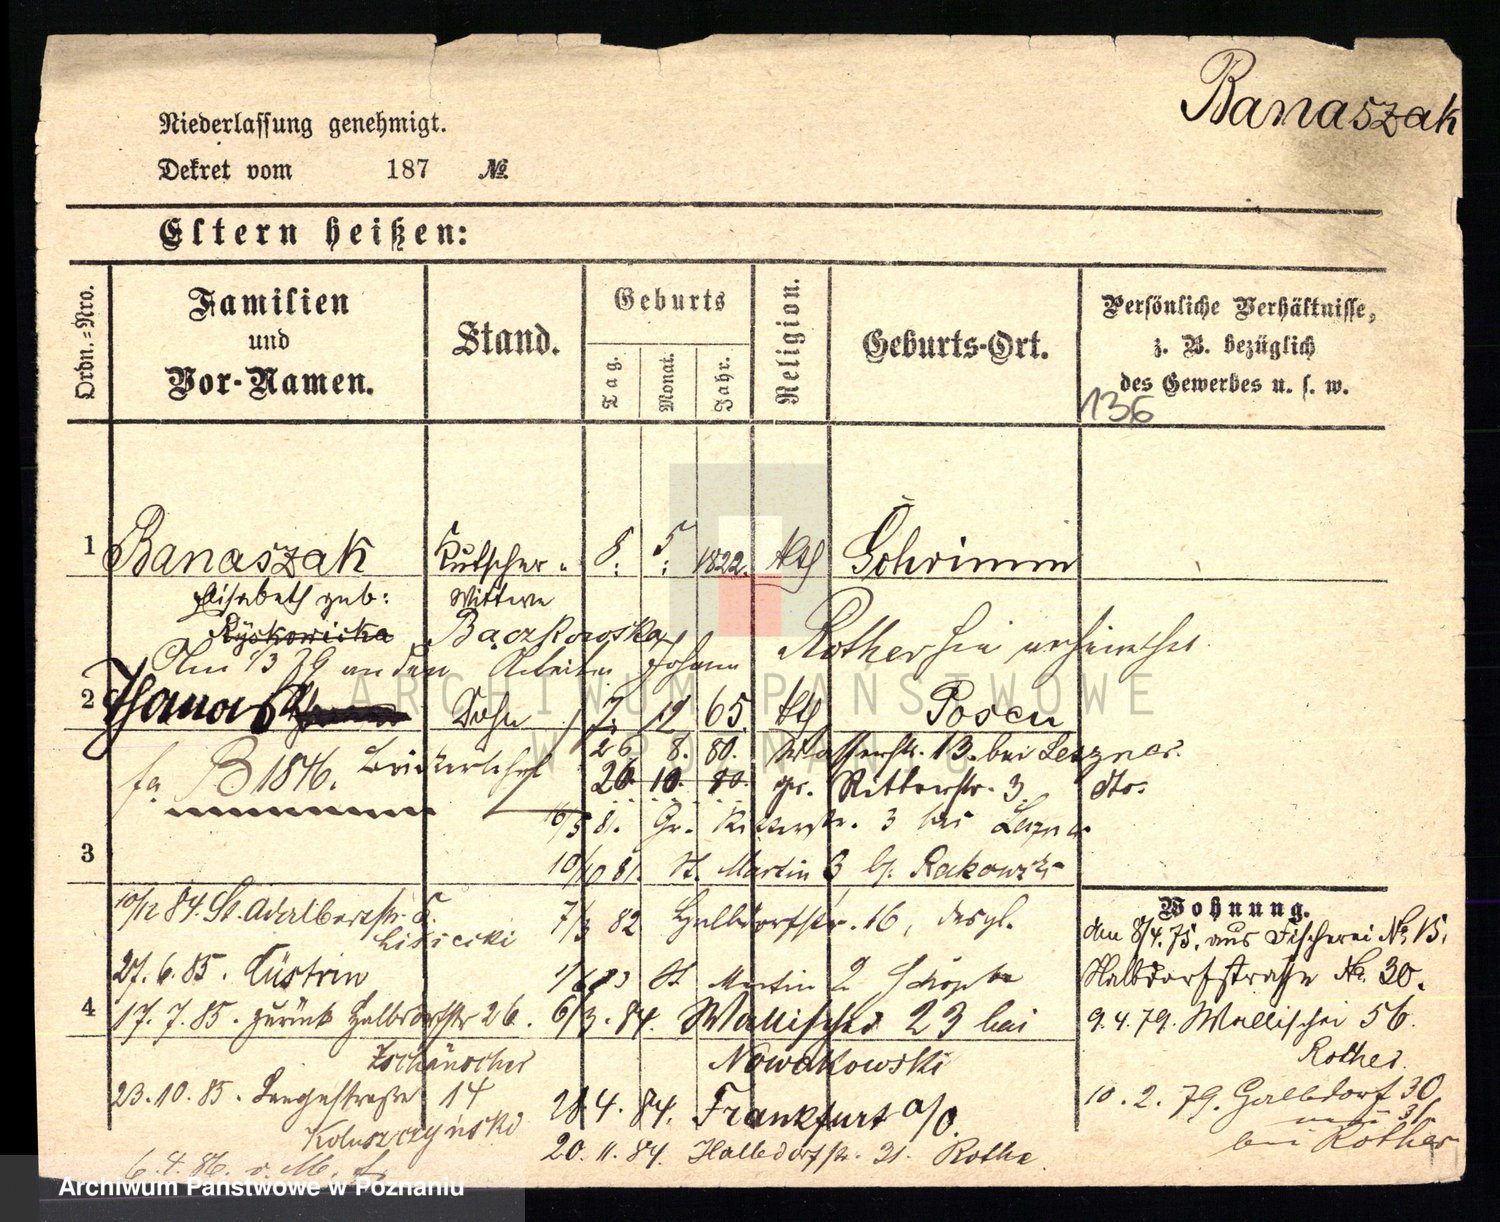 Banaszak
Niederlassung genehmigt.
Dekret vom 187 №
Eltern heißen:
Ordn.=Nro.
Familien
und
Vor-Namen.
Stand.
Geburts
Tag.
Monat.
Jahr.
Religion.
Geburts-Ort.
Persönliche Verhältnisse,
z. B. bezüglich
des Gewerbes u. s. w.
136
1 Banaszak Kutscher 8. 5. 1822. kth Schrimm
Elisabeth geb: Wittwe
Ryskowicka Baczkowska
an den Arbeiter Johann Rother
2 Sohn 7. 12 65. kth Posen
26. 8. 80. Wasserstr. 13. bei Lezner.
B 1846.
26. 10. 80. gr. Ritterstr. 3. dto.
16/5 81. Gr. Ritterstr. 3 bei Lezner
3
10/10 81. St. Martin 3 b. Rakowski
10/12 84. St. Adalbertstr. 5. 7/3 82 Halbdorfstr. 16, desgl.
Lisiecki
Wohnung.
den 8/4. 75. aus Fischerei No. 15.
27. 6. 85. Cüstrin St. Martin 2
Halbdorfstraße No. 30.
4
17. 7. 85. zurück Halbdorfstr 26. 6/3. 84. Wallischei 23 bei
9. 4. 79. Wallischei 56.
Nowakowski
Rother.
23. 10. 85. Langestraße 14 28. 4. 84. Frankfurt a/O.
10. 2. 79. Halbdorf 30
bei Rother
20. 11. 84. Halbdorfstr. 31. Rothe.
6. 4. 86.
ARCHIWUM PAŃSTWOWE
W POZNANIU
Archiwum Państwowe w Poznaniu